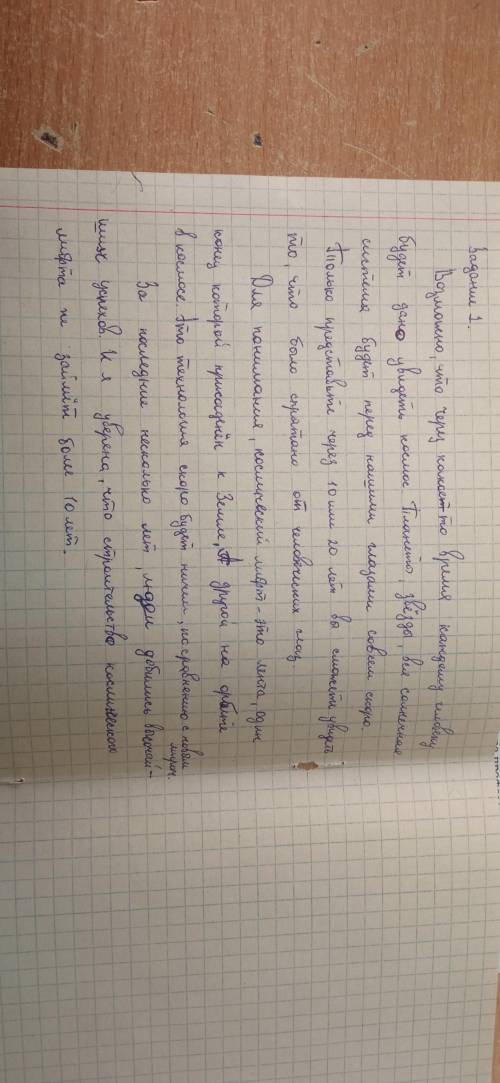 Задание 1.
Возможно, что через какое-то время каждому человеку
будет дано увидеть космос. Планеты, звёзды, вся солнечная
система будет перед нашими глазами совсем скоро.
Только представьте через 10 или 20 лет вы сможете увидеть
то, что было спрятано от человеческих глаз.
Для понимания, космический лифт - это лента, один
конец которой присоединён к Земле, а другой на орбите
в космосе. Это технология скоро будет ничем, по сравнению с новым
За последние несколько лет, люди добились высочай-
ших успехов. И я уверена, что строительство космического
лифта не займёт боле 10 лет.